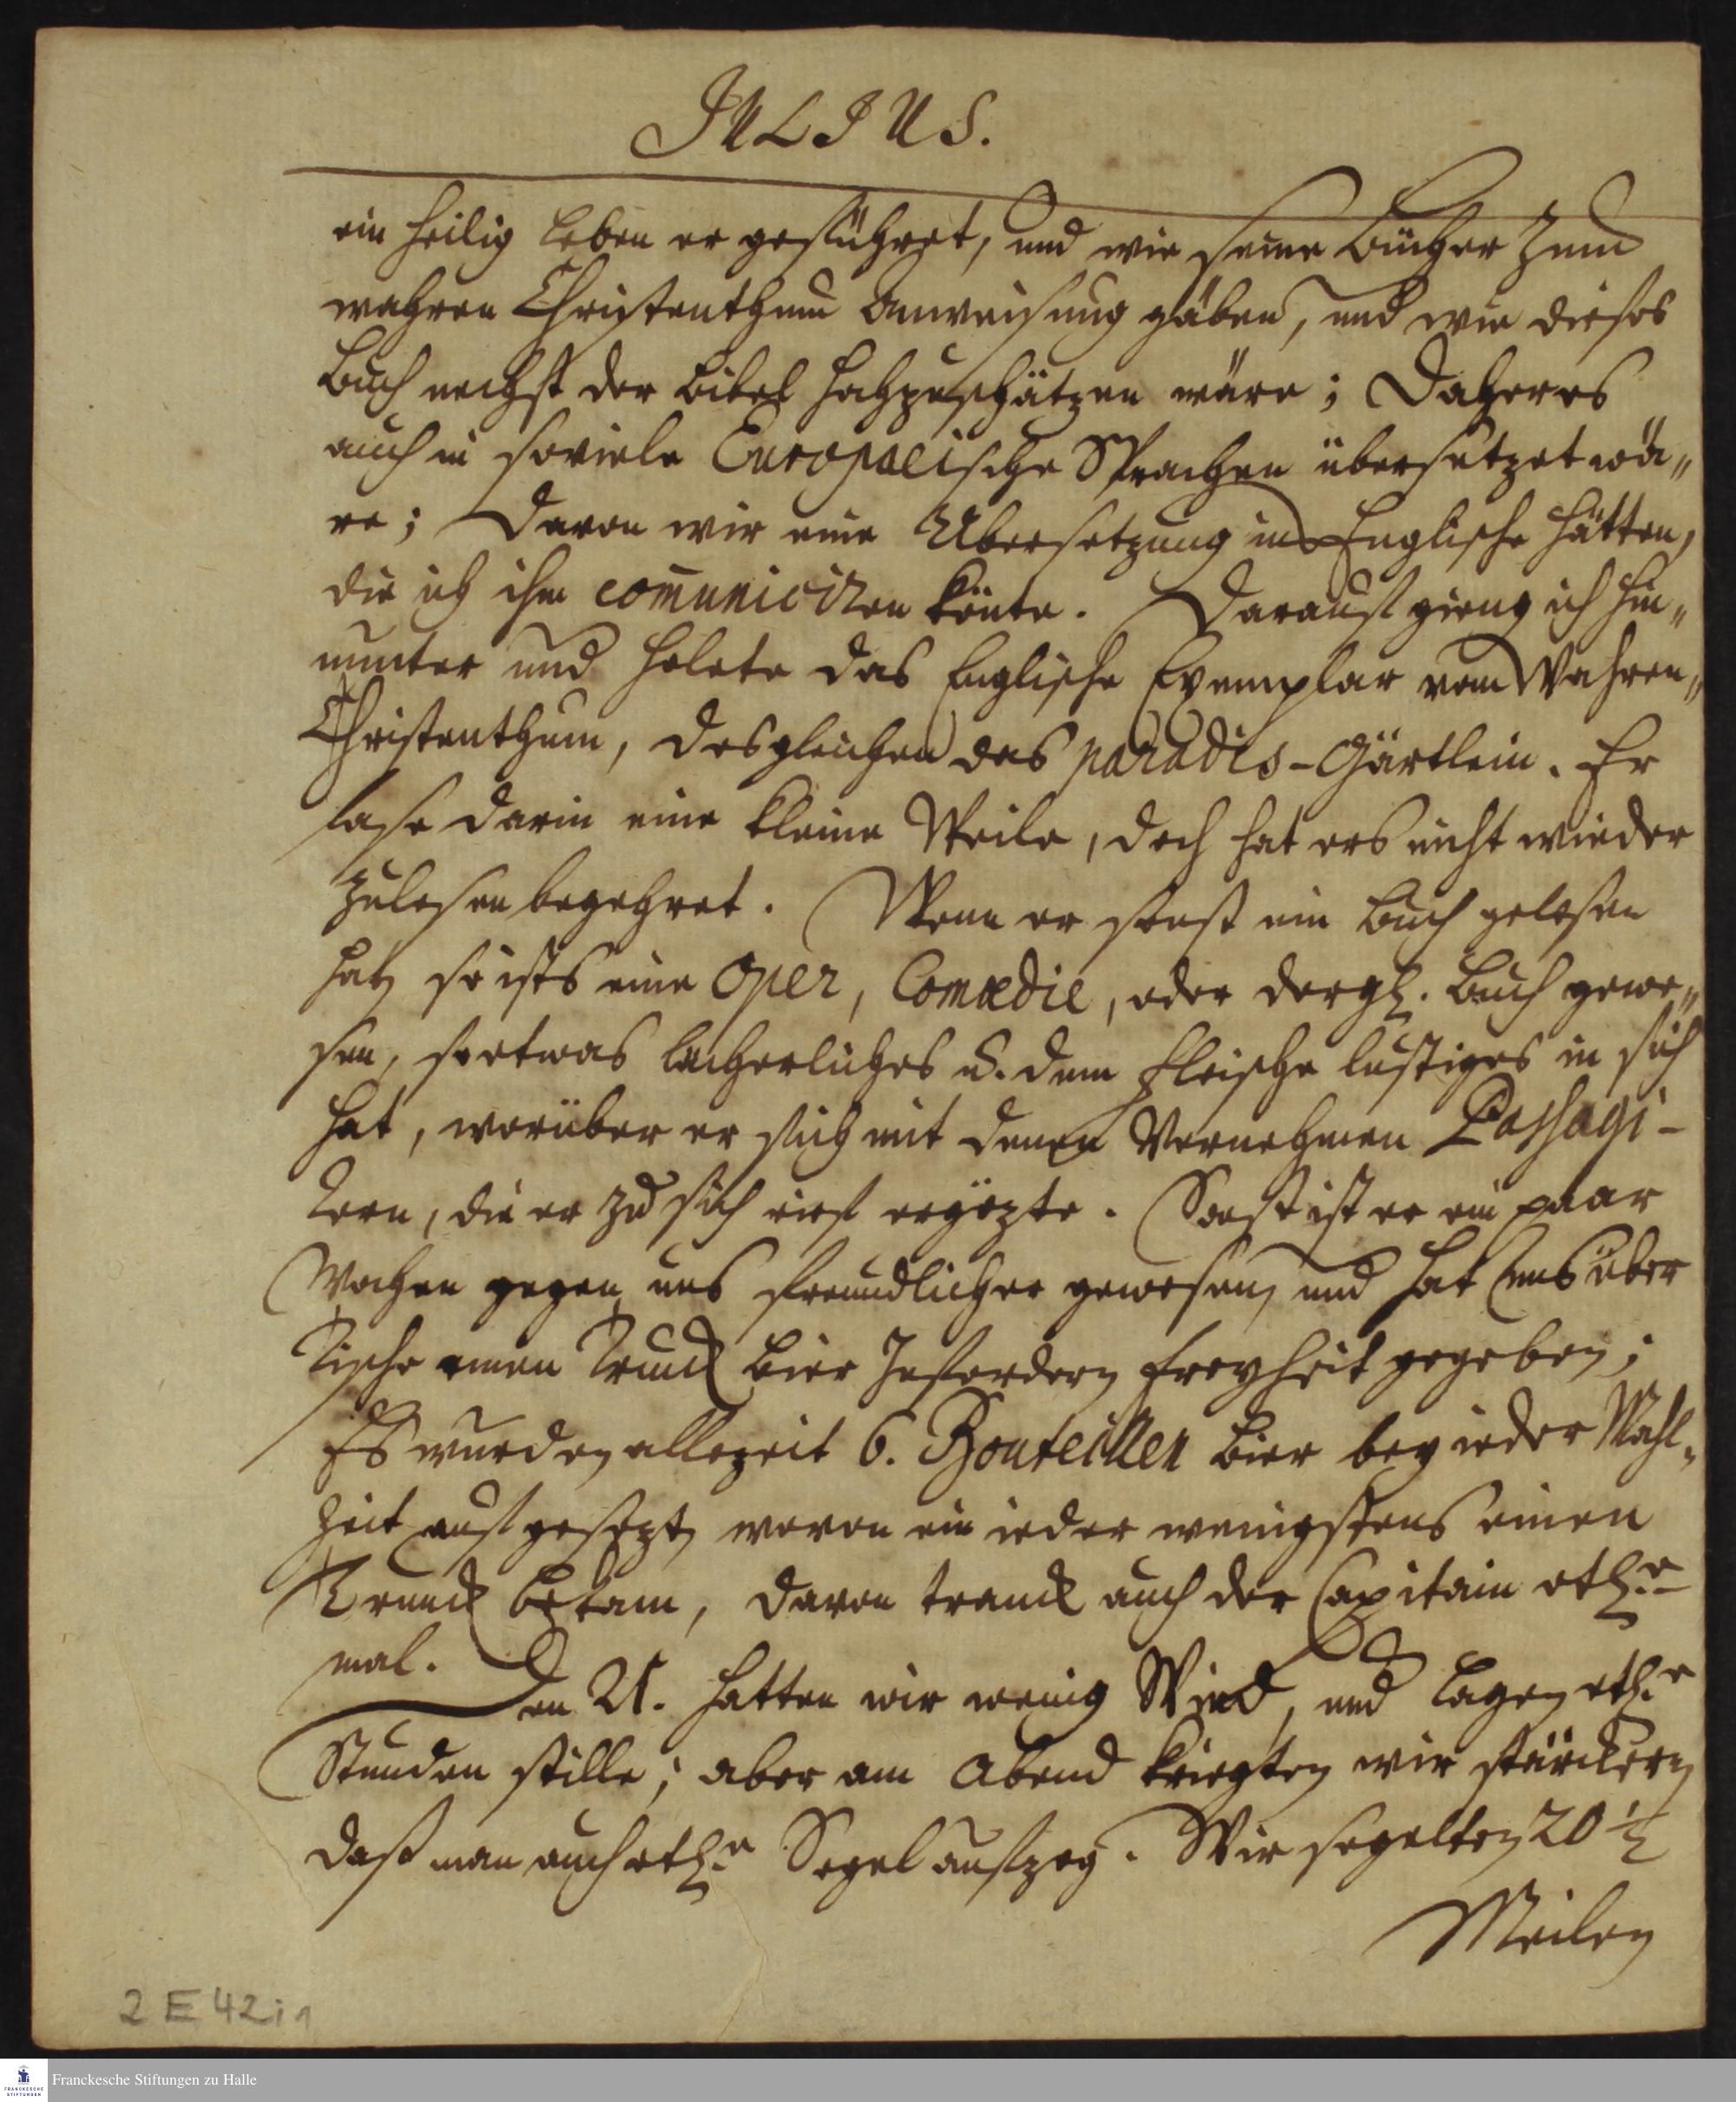 JULIUS.
ein heilig Leben er geführet, und wie seine Bücher zum
wahren Christenthum Anweisung gäben, und wie dieses
Buch nechst der Bibel hochzuschätzen wäre; Daher es
auch in soviele Europaeische Sprachen übersetzet wä„
re; Davon wir eine Ubersetzung ins Englische hätten,
die ich ihm com̄uniciren könte. Darauf gieng ich hin„
unter und holete das Englische Exemplar vom Wahren„
Christenthum, desgleichen das paradis-Gärtlein. Er
lase darin eine kleine Weile, doch hat ers nicht wieder
zulesen begehret. Wenn er sonst ein Buch gelesen
hat, so ists eine Oper, Comœdie, oder dergl. Buch gewe„
sen, so etwas lächerliches u. dem Fleische lustiges in sich
hat, worüber er sich mit denen Vornehmen Passagi-
rern, die er zu sich rief ergözte. Sonst ist er ein paar
Wochen gegen uns freundlicher gewesen, und hat uns über
Tische einen Trunck Bier zufordern Freyheit gegeben;
Es wurden allezeit 6. Bouteillen Bier bey ieder Mahl„
zeit aufgesezt, wovon ein ieder wenigstens einen
Trunck bekam, davon tranck auch der Capitain etl.e
mal.
Den 21. hatten wir wenig Wind, und lagen etl.e
Stunden stille; aber am Abend kriegten wir stärckern
daß man auch etl.e Segel aufzog. Wir segelten 20 ½
Meilen
2 E 42:1
Franckesche Stiftungen zu Halle
FRANCKESCHE
STIFTUNGEN